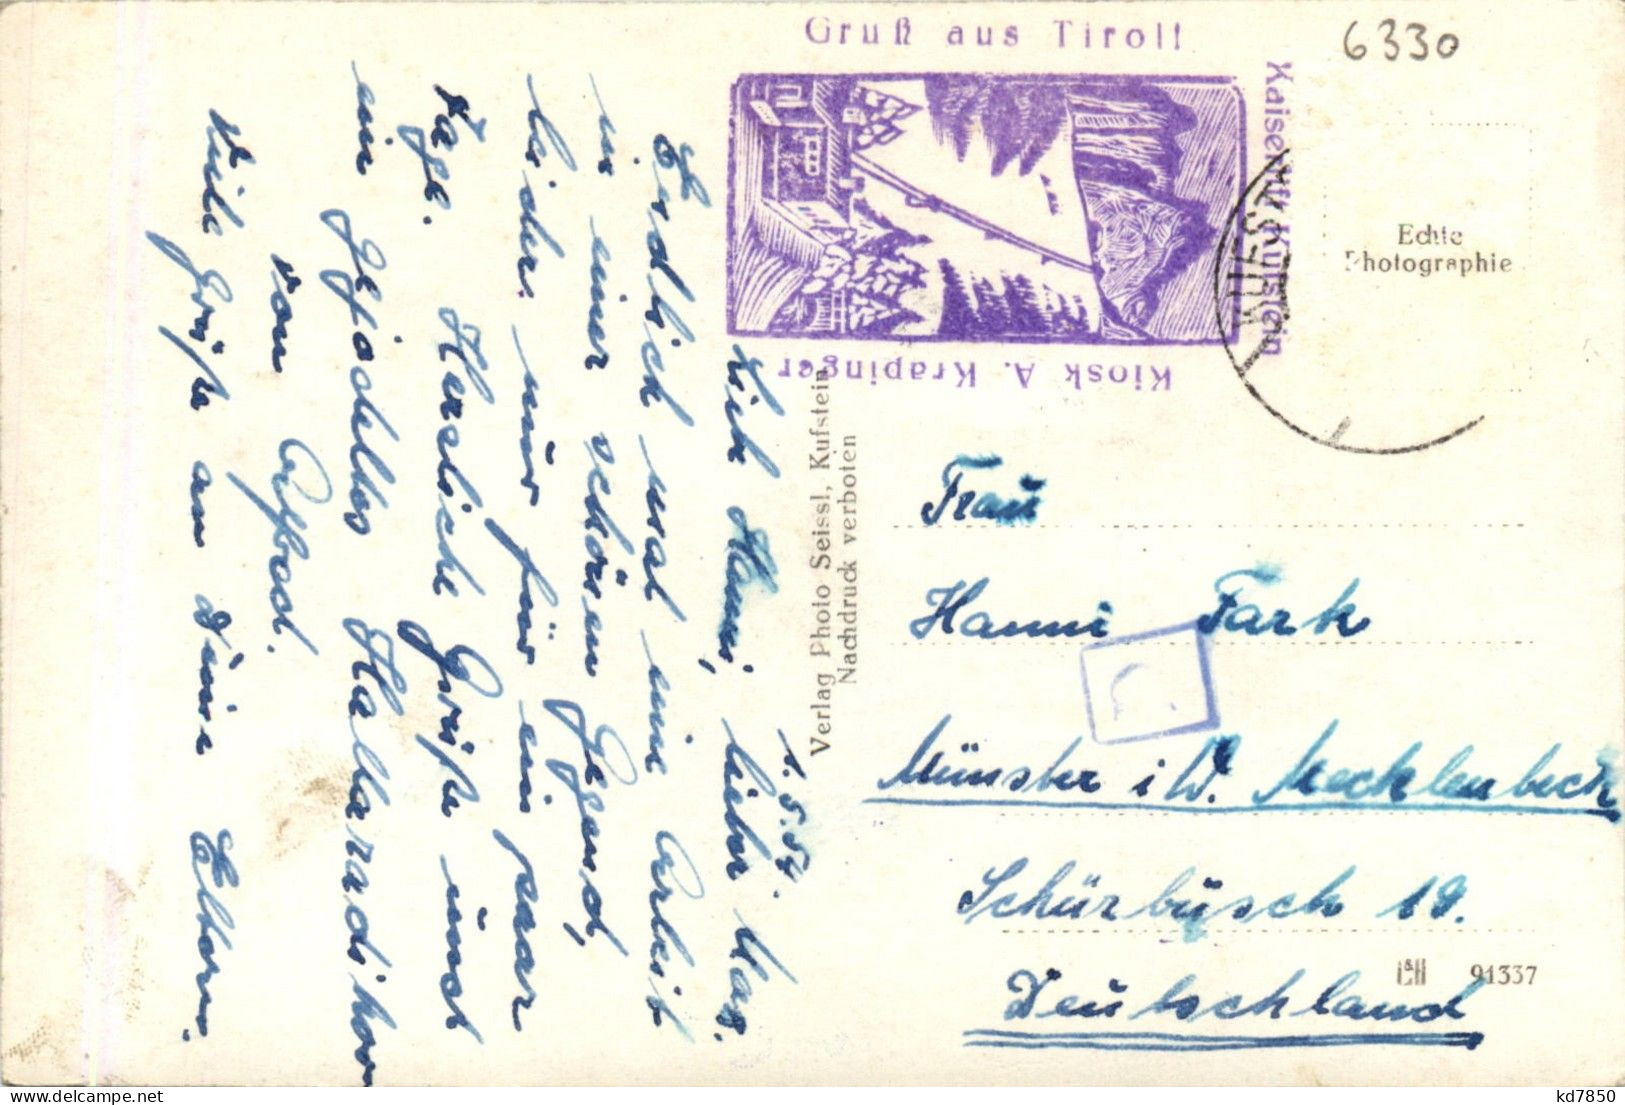 6330
Gruß aus Tirol!
Kaiserlift Kufstein
Kiosk A. Krapinger
KUFST
Echte
Photographie
1.5.54
Liebe Hanni, lieber Mag.
Endlich mal eine Arbeit
in einer schönen Gegend,
leider nur für ein paar
Tage. Herzliche Grüße und
ein
von
Viele Grüße an Deine Eltern.
Verlag Photo Seissl, Kufstein
Nachdruck verboten
Frau
Hanni Fark
Münster i W. Mecklenbeck
Schürbusch 19.
Deutschland
91337
kd7850